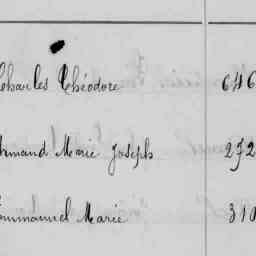 Charles Théodore 646
Armand Marie Joseph 272
Emmanuel Marie 310